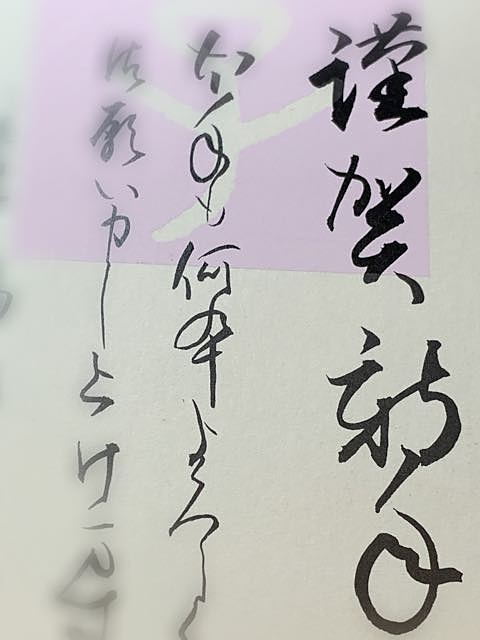 謹賀新年
本年も何卒よろしく
御願い申し上げます